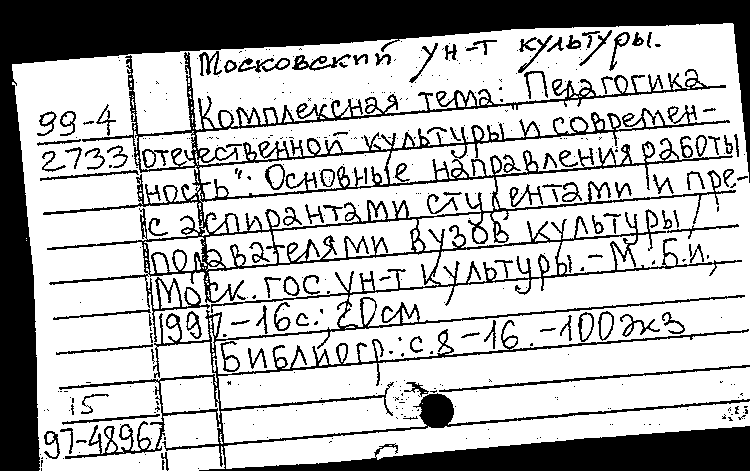 Московский ун-т культуры.
99-4 Комплексная тема: "Педагогика
2733 отечественной культуры и современ-
ность": Основные направления работы
с аспирантами, студентами и пре-
подавателями вузов культуры /
Моск. гос. ун-т культуры. - М.: Б.и.,
1997. - 16с.; 20см
Библиогр.: с.8-16. - 100экз.
15
97-48967